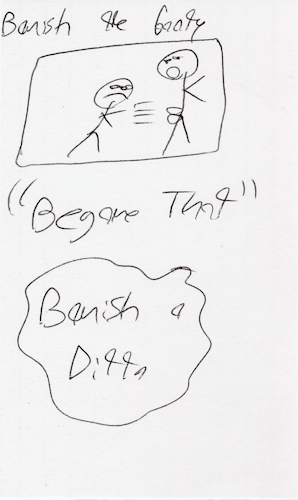 Banish the
"Begone That"
Banish a
Ditto